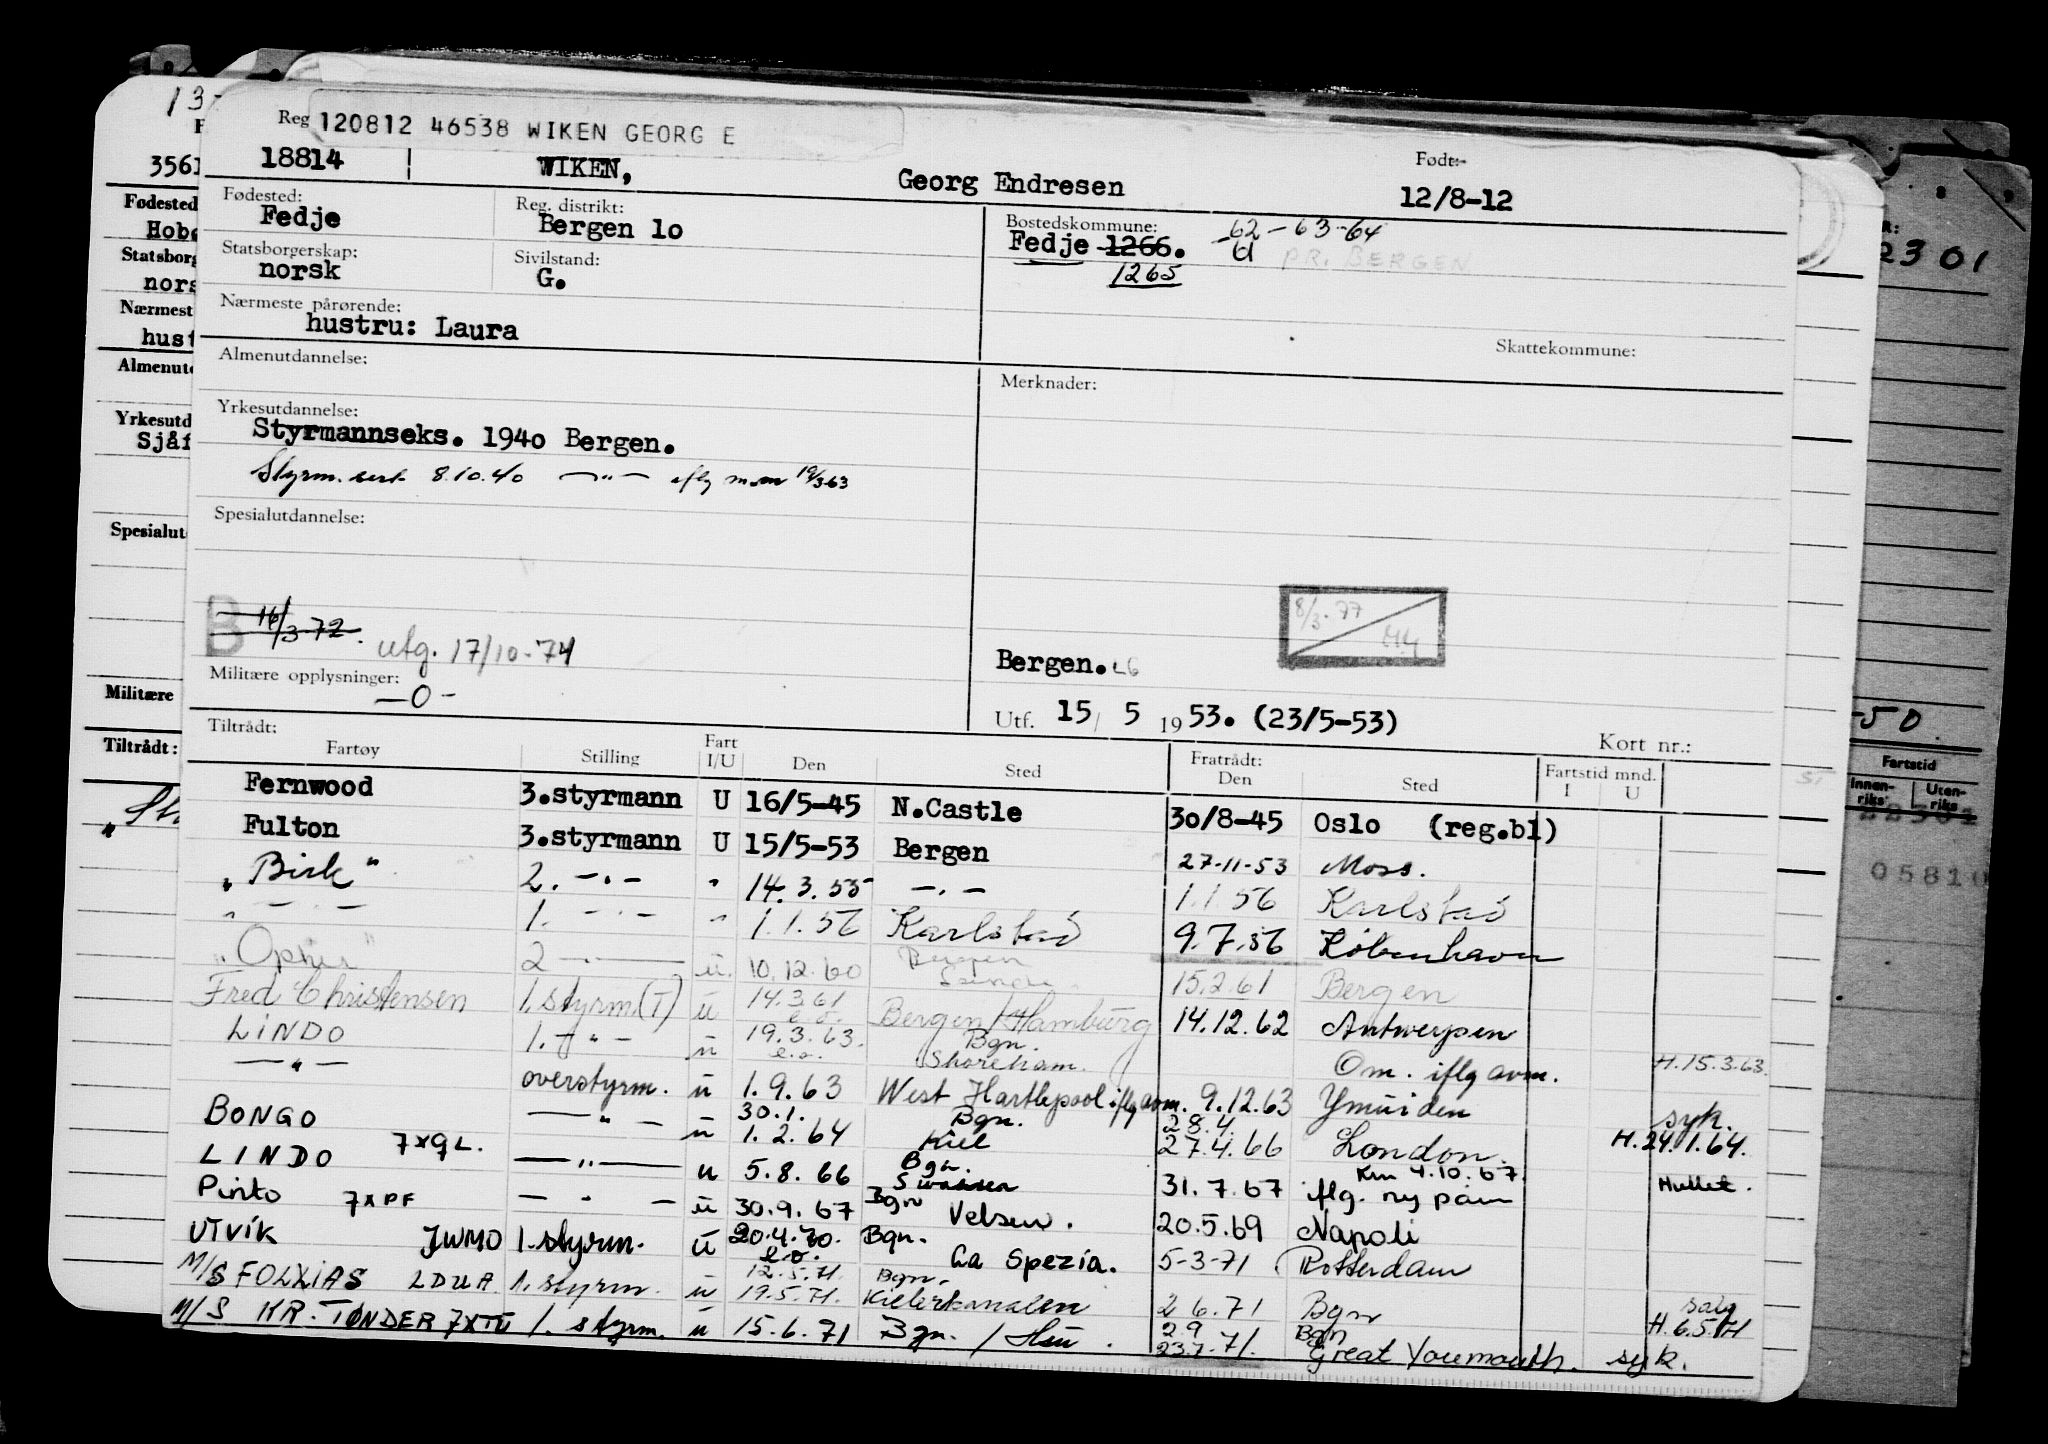 13
Reg 120812 46538 WIKEN GEORG E
3561 18814 WIKEN, Georg Endresen Født:- 12/8-12
Fødested: Fødested: Reg. distrikt: Bostedskommune: 62-63-64
Hobø Fedje Bergen 1o Fedje 1266. U PR. BERGEN 2301
Statsborg Statsborgerskap: Sivilstand: 1265
nors norsk G.
Nærmest Nærmeste pårørende:
hust hustru: Laura
Skattekommune:
Almenut Almenutdannelse: Merknader:
Yrkesutd Yrkesutdannelse:
Sjåf Styrmannseks. 194o Bergen.
Styrm. sert 8.10.40 —"— iflg m.m 19/3-63
Spesialut Spesialutdannelse:
B 16/3-72. utg. 17/10-74 8/3-77
Bergen. LG
Militære Militære opplysninger:
—0-
Utf. 15/ 5 1953. (23/5-53) -50
Tiltrådt: Tiltrådt: Fratrådt: Kort nr.: Fartstid
Fartøy Stilling Fart I/U Den Sted Den Sted Fartstid mnd. I U Innen-riks Uten-riks
Fernwood 3.styrmann U 16/5-45 N.Castle 3o/8-45 Oslo (reg.bl)
Fulton 3.styrmann U 15/5-53 Bergen 27-11-53 Moss.
"Birk" 2. -"- " 14.3.55 -"- 1.1.56 Karlstad
" — - — 1. -"- " 1.1.56 Karlstad 9.7.56 København
"Ophir" 2 — u. 10.12.60 Bergen 15.2.61 Bergen
Fred Christensen 1. styrm.(T) u 14.3.61 e.o. Bergen/Hamburg 14.12.62 Antwerpen
LINDO 1. -"- u 19.3.63. e.o. Bgn. Shoreham. Om. iflg avm. H.15.3.63.
—"— overstyrm. u 1.9.63 West Hartlepool iflg avm. 9.12.63 Ymuiden syk.
BONGO 7XQL. —"— u 30.1. 1.2.64 Bgn. Kiel 28.4. 27.4.66 London. H.24.1.64.
LINDO —"— u 5.8.66 Bgn. Swansea 31.7.67 iflg. ny påm Km 4.10.67.
Pinto 7XPF — " — u 30.9.67 Bgn Velsen. 20.5.69 Napoli
UTVIK JWMO 1.styrm. u 20.4.70. e.o. Bgn. La Spezia. 5-3-71 Rotterdam
M/S FOLKIAS LDUA 1. styrm. u 12.5.71. 19.5.71. Bgn. Kielerkanalen 2 6.71 Bgn salg H.6.5.71
M/S KR. TØNDER 7XTU 1. styrm. u 15.6.71 Bgn. / Hsu. 29 23.7.71. Bgn Great Youmouth. syk.